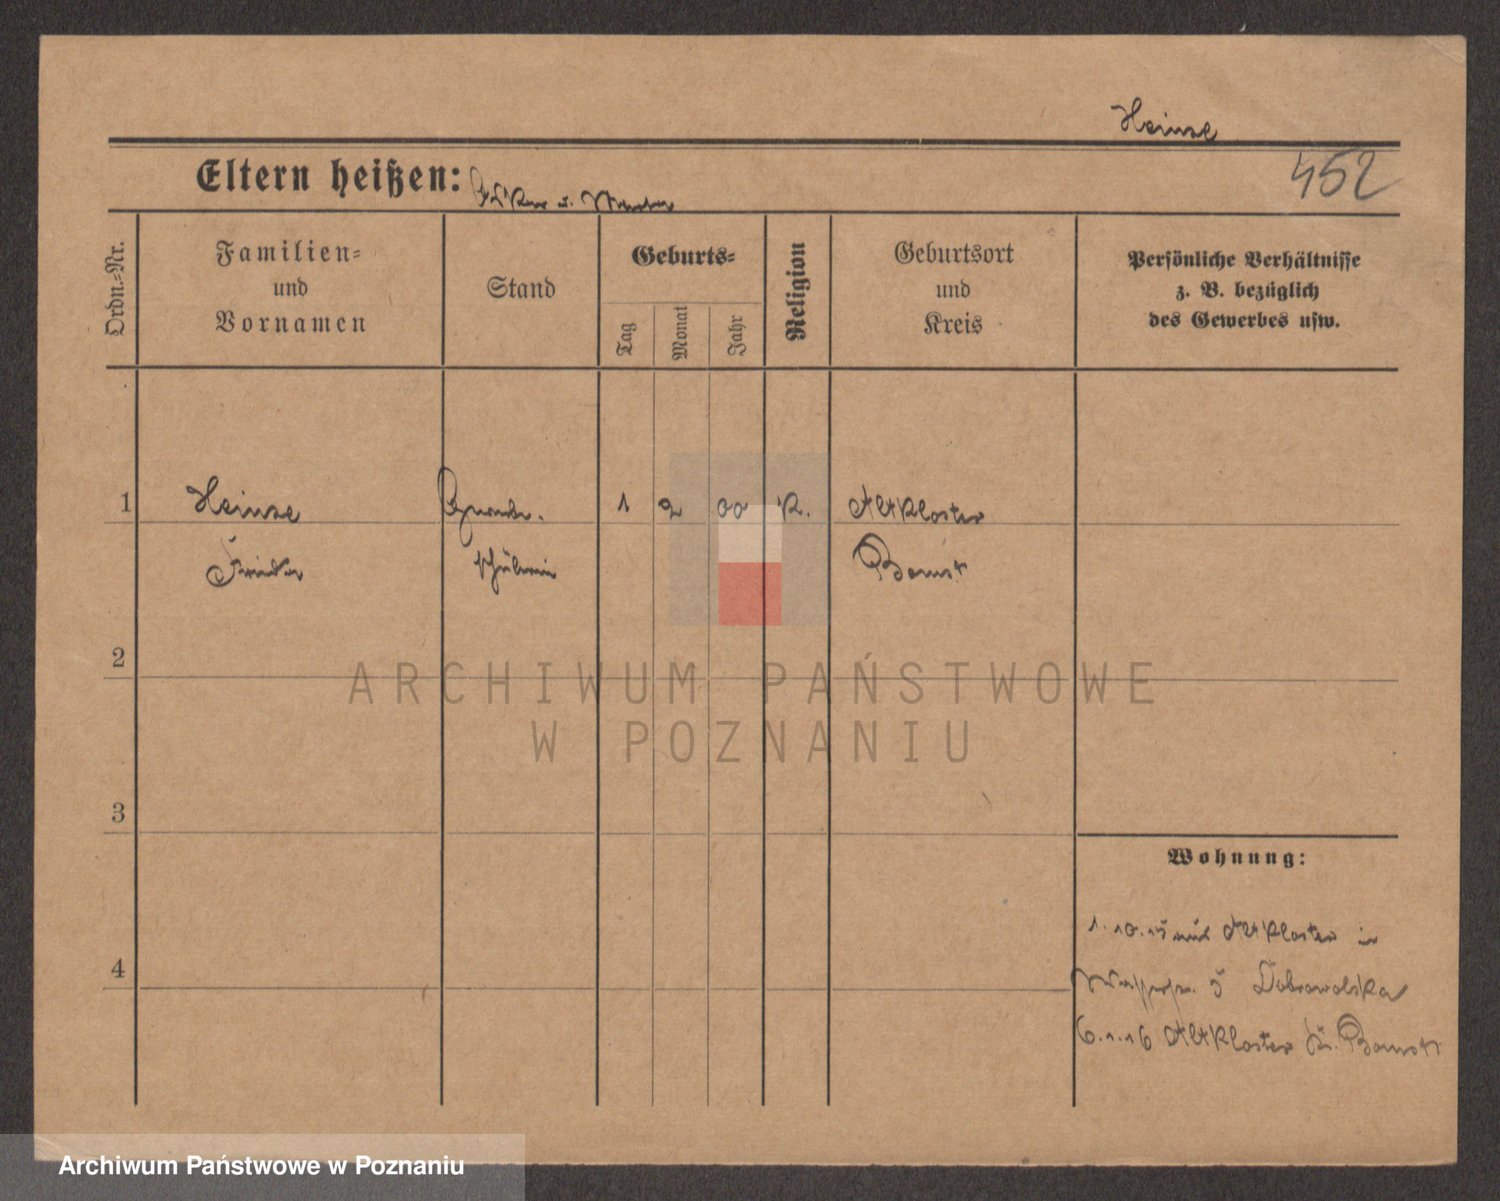 Heinze
452
Eltern heißen:
Ordn.-Nr.
Familien-
und
Vornamen
Stand
Geburts-
Tag
Monat
Jahr
Religion
Geburtsort
und
Kreis
Persönliche Verhältnisse
z. B. bezüglich
des Gewerbes usw.
1 Heinze Gewerbe- 1 2 00 K. Altkloster
Frieda schülerin Bomst
2
ARCHIWUM PAŃSTWOWE
W POZNANIU
3
Wohnung:
1.10.15 aus Altkloster in
4
5 Dobrowolska
6.1.16 Altkloster Kr. Bomst
Archiwum Państwowe w Poznaniu